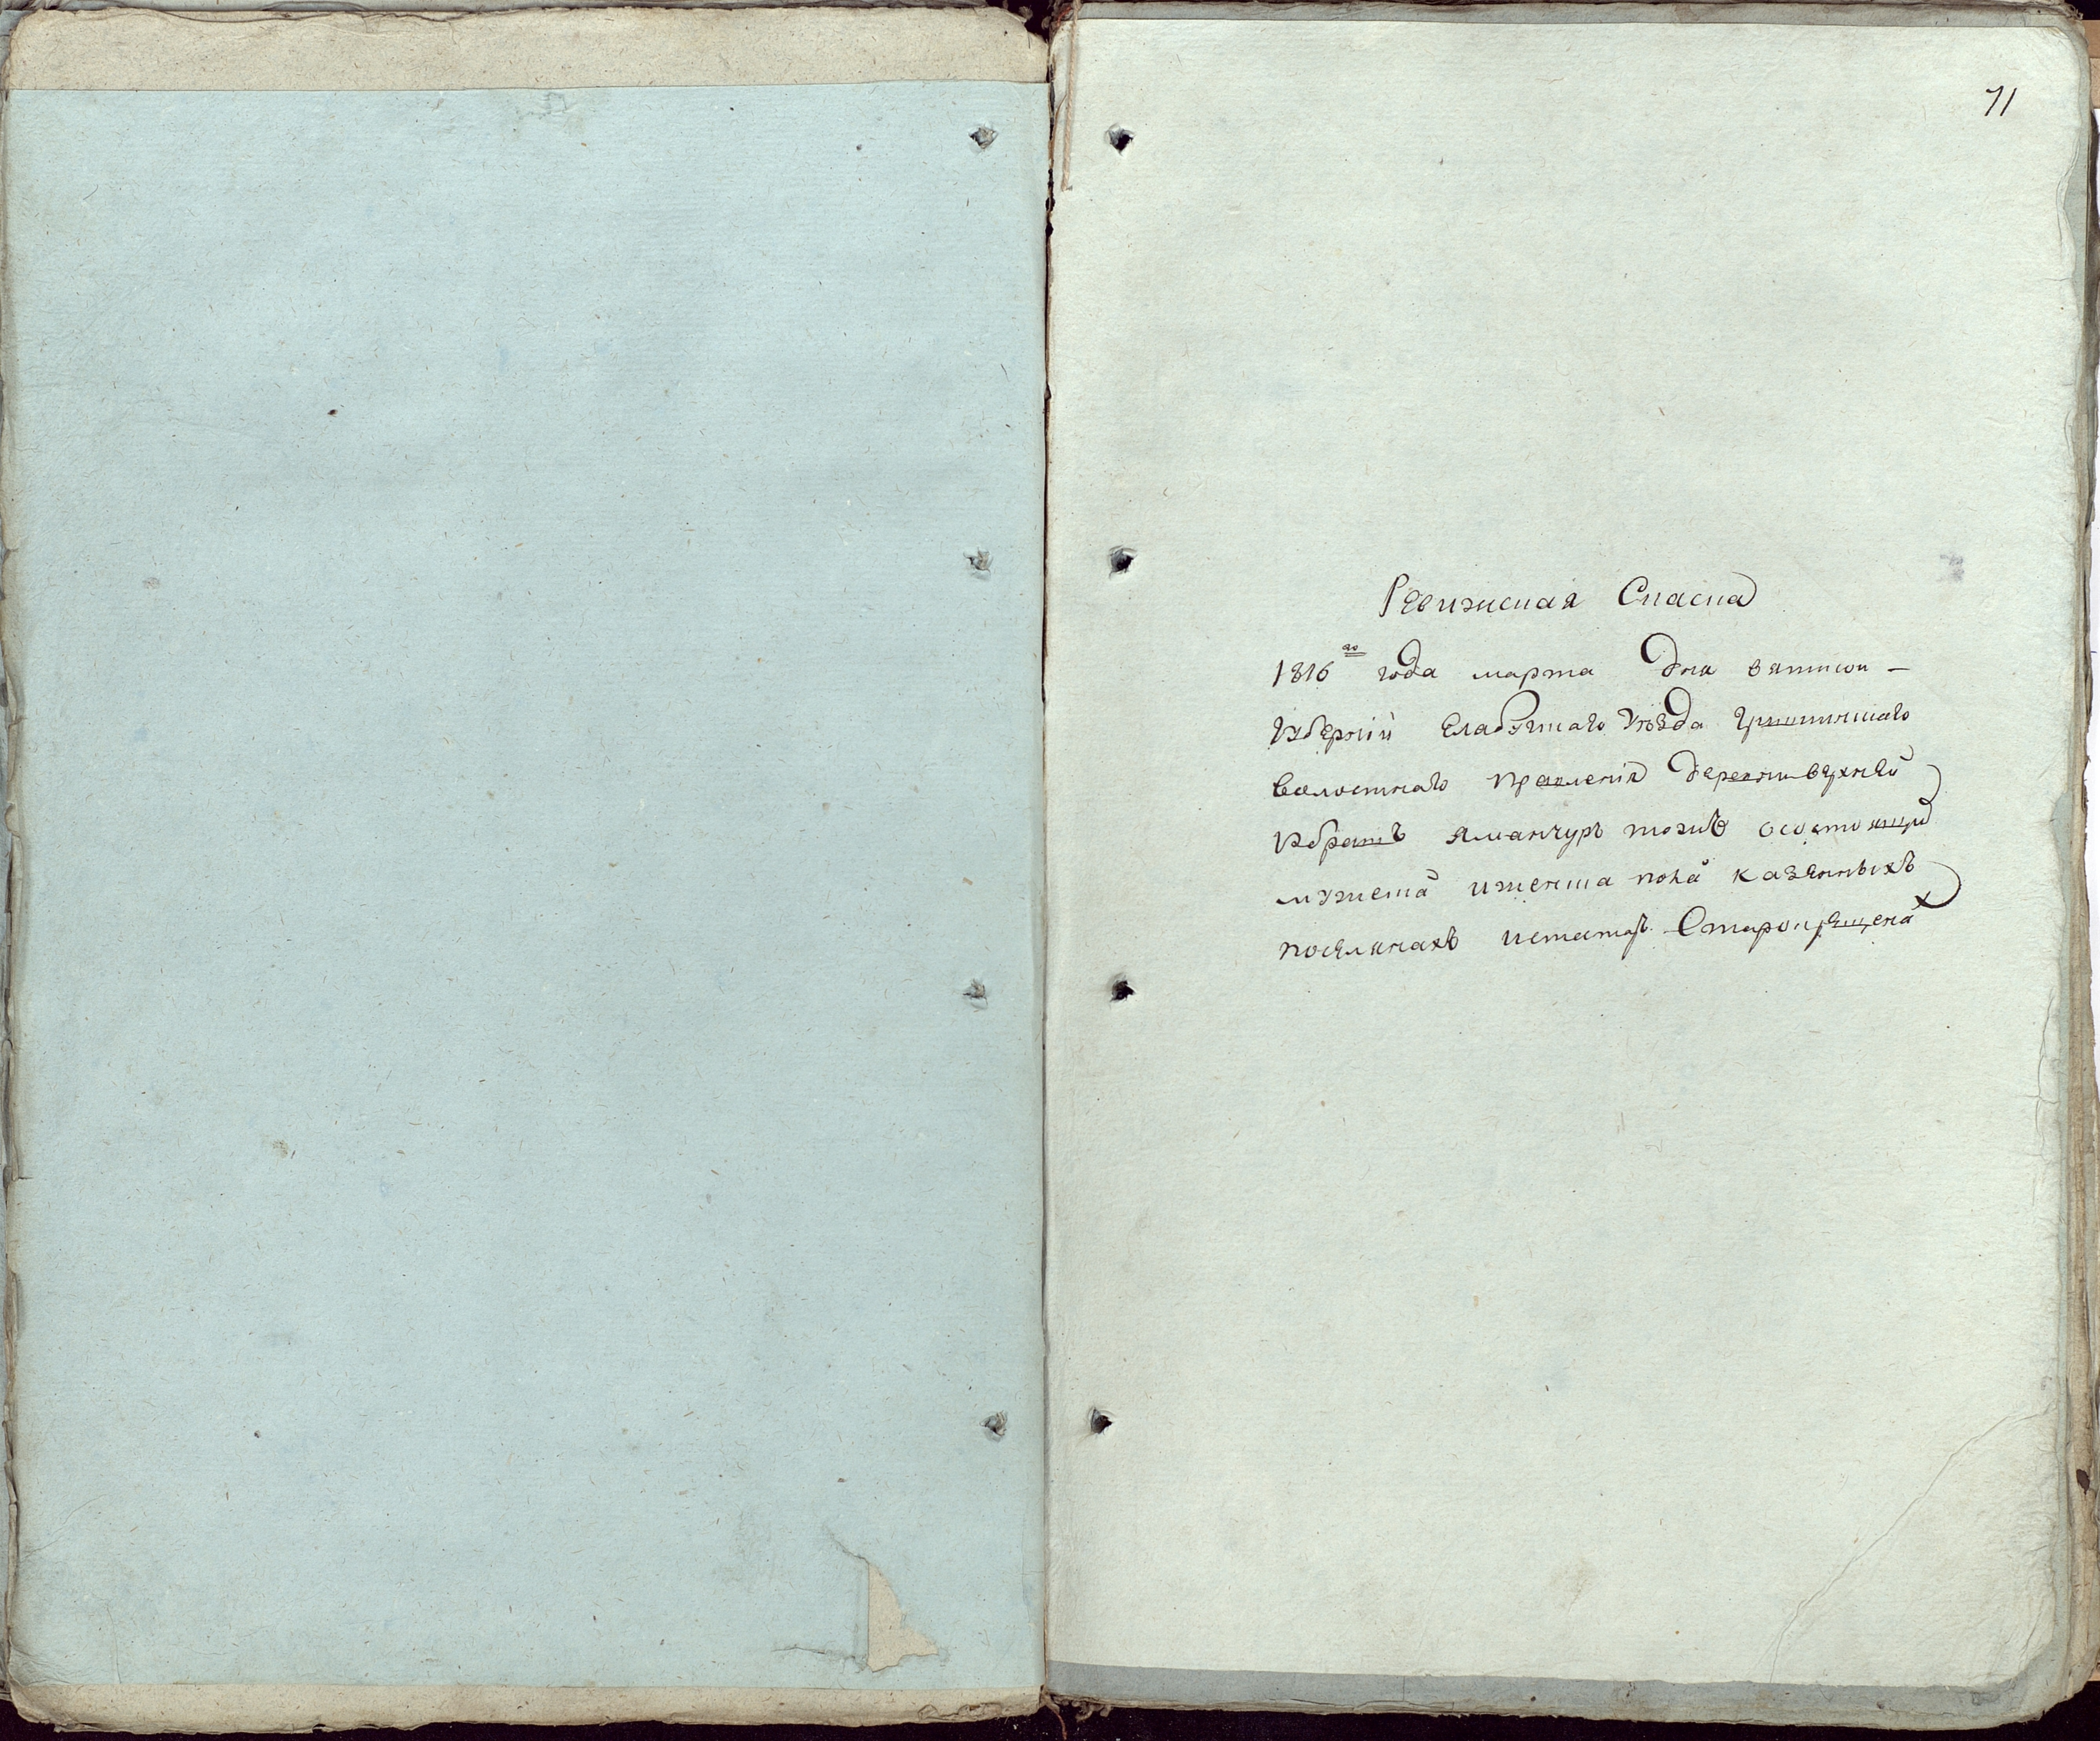 71
Ревижская Скаска
1816го года марта Дня вятской
губернiи Елабужскаго уѣзда
волостнаго правленiя деревни верхней
тожъ осостоящихъ
мужеска иженска пола казенныхъ
поселянахъ Старокрещена